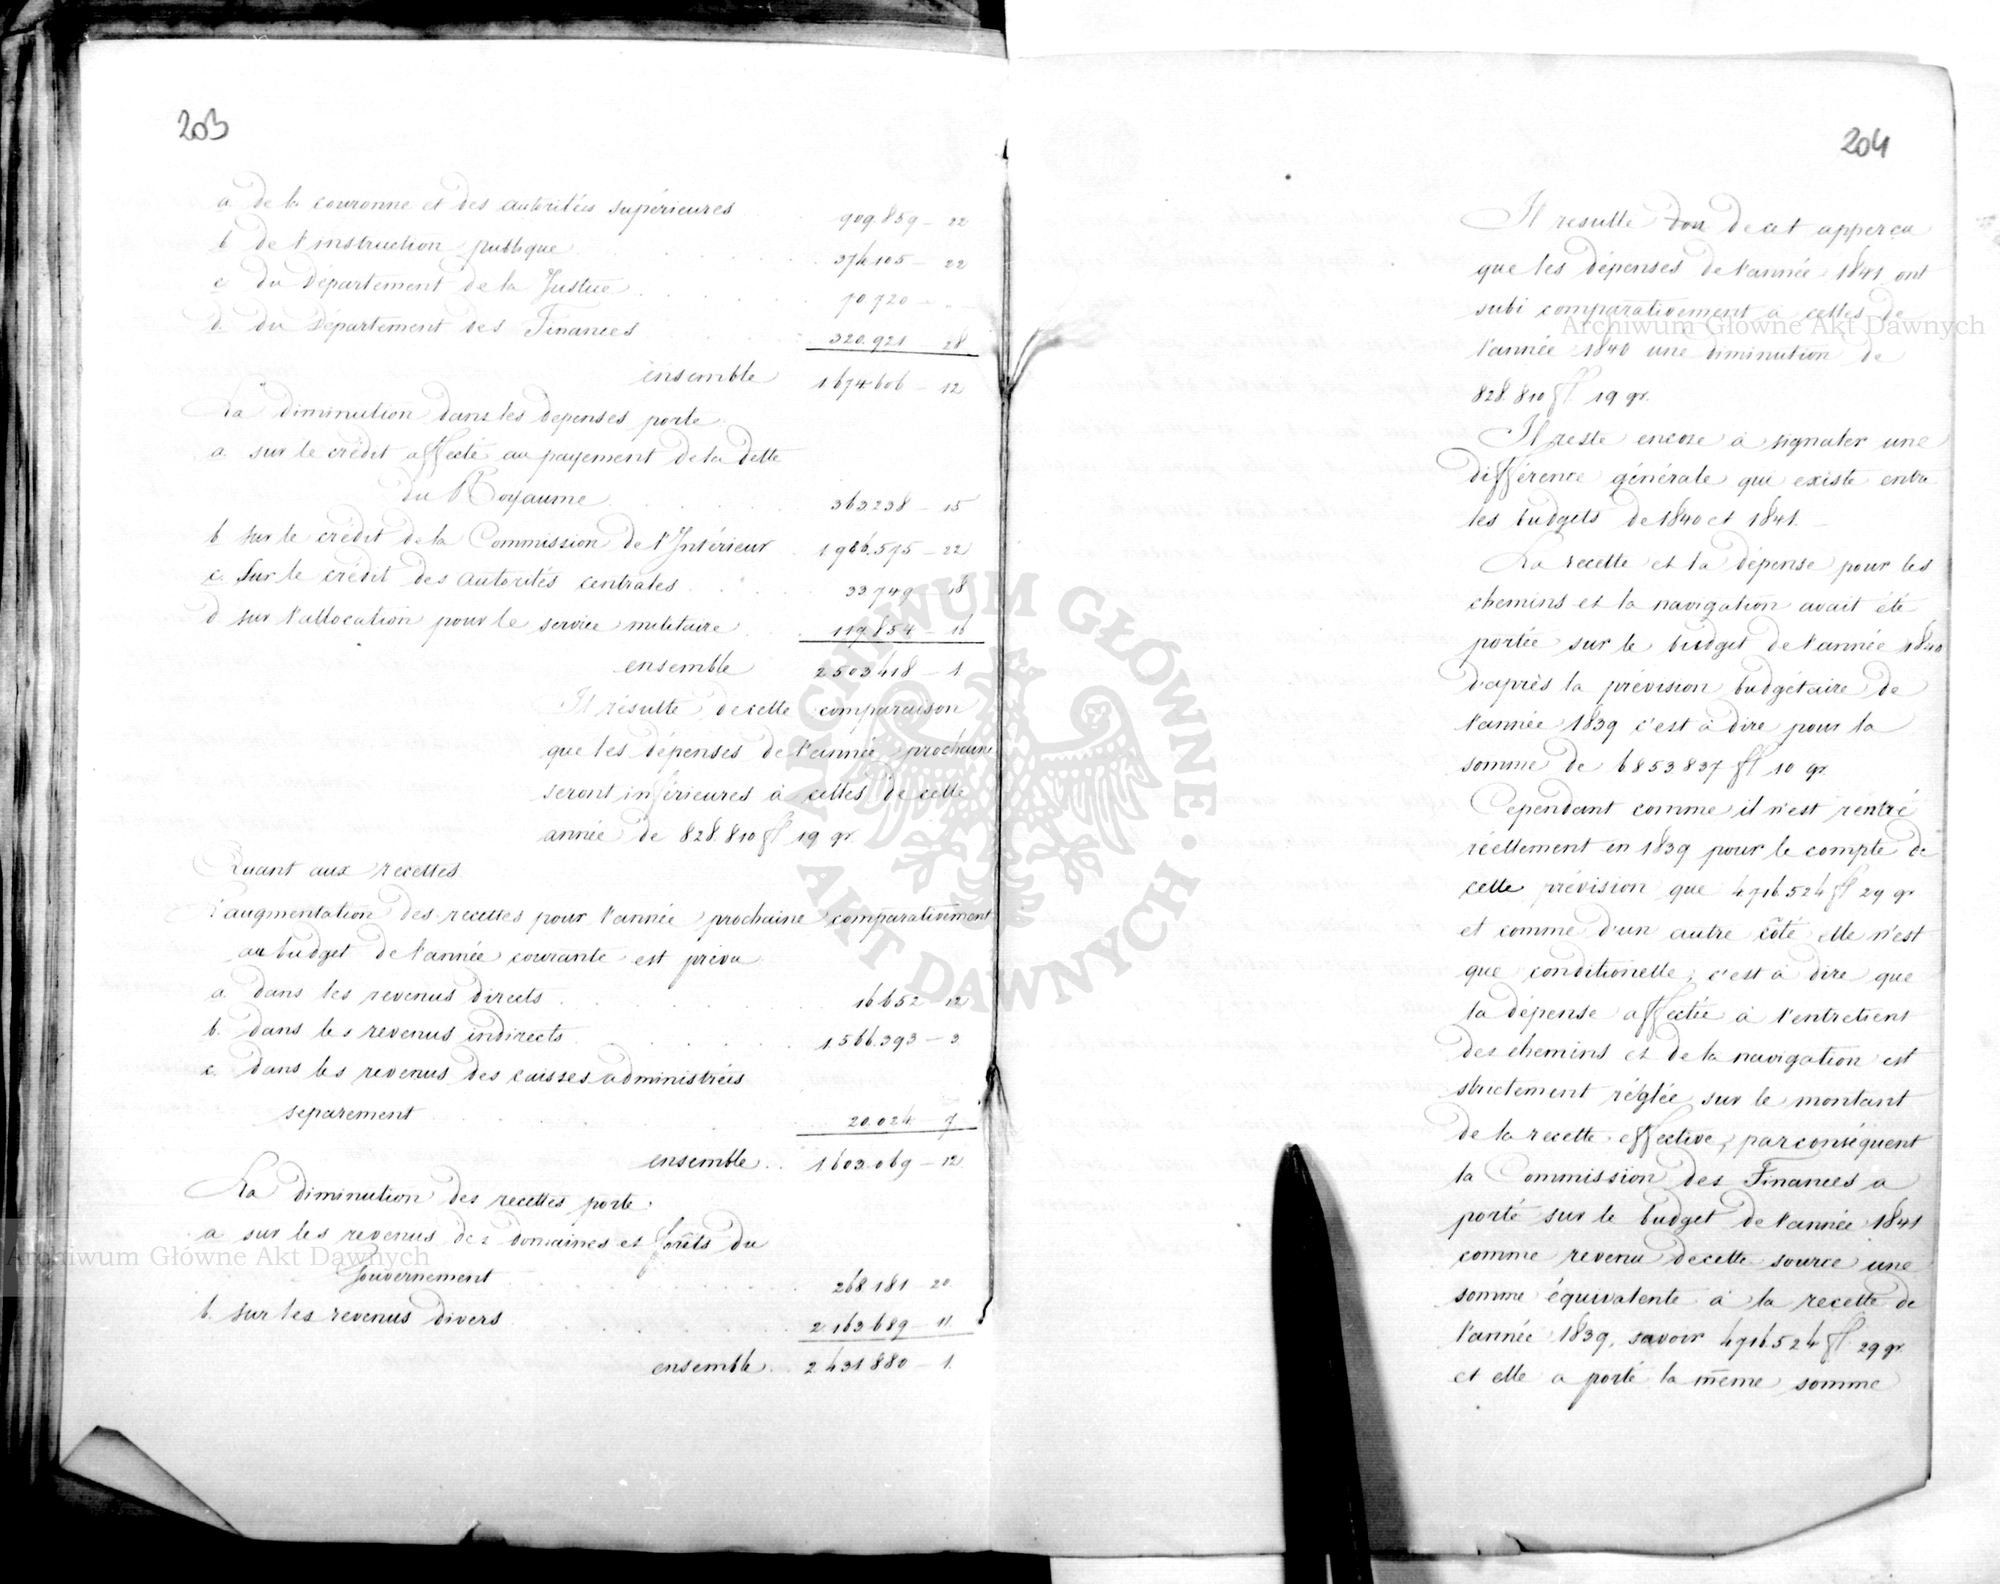 203
a de la couronne et des autorités supérieures 909.859 – 22
b de l'instruction publique . . . 374105 – 22
c. du Département de la Justice . . . 70720 – "
d. du Département des Finances . . . 320.921 – 28
ensemble 1674606 – 12
La diminution dans les depenses porte:
a. sur le crédit affecté au payement de la dette
du Royaume . . . 363238 – 15
b sur le crédit de la Commission de l'Intérieur . 1986.575 – 22
c. Sur le crédit des autorités centrales . . . 33749 – 18
d sur l'allocation pour le service militaire . . 119.854 – 16
ensemble 2503418 – 1
Il résulte de cette comparaison
que les dépenses de l'année prochaine
seront inférieures à celles de cette
année de 828.810 fl 19 gr.
Quant aux recettes
l'augmentation des recettes pour l'année prochaine comparativement
au budget de l'année courante est prévu
a. dans les revenus directs . . . 16652 – 12
b. dans les revenus indirects . . . 1.566.393 – 3
c. dans les revenus des caisses administrées
separement . . . 20.024 – 7
ensemble . . 1603.069 – 12
La diminution des recettes porte:
a sur les revenus des domaines et forêts du
Gouvernement . . . 268.181 – 20
b. sur les revenus divers . . . 2.163.689 – 11
ensemble . . 2.431.880 – 1.
204
Il resulte de cet apperçu
que les dépenses de l'année 1841 ont
subi comparativement à celles de
l'année 1840 une diminution de
828.810 fl. 19 gr.
Il reste encore à signaler une
différence générale qui existe entre
les budgets de 1840 et 1841. –
La recette et la dépense pour les
chemins et la navigation avait été
portée sur le budget de l'année 1840
d'après la prévision budgétaire de
l'année 1839 c'est à dire pour la
somme de 6853837 fl 10 gr.
Cependant comme il n'est rentré
réellement en 1839 pour le compte de
cette prévision que 4716.524 fl 29 gr
et comme d'un autre côté elle n'est
que conditionelle, c'est à dire que
la dépense affectée à l'entretient
des chemins et de la navigation est
strictement réglée sur le montant
de la recette effective, par conséquent
la Commission des Finances a
porté sur le budget de l'année 1841
comme revenu de cette source une
somme équivalente à la recette de
l'année 1839, savoir 4716.524 fl 29 gr.
et elle a porté la même somme
Archiwum Główne Akt Dawnych
Archiwum Główne Akt Dawnych
ARCHIWUM GŁÓWNE · AKT DAWNYCH ·